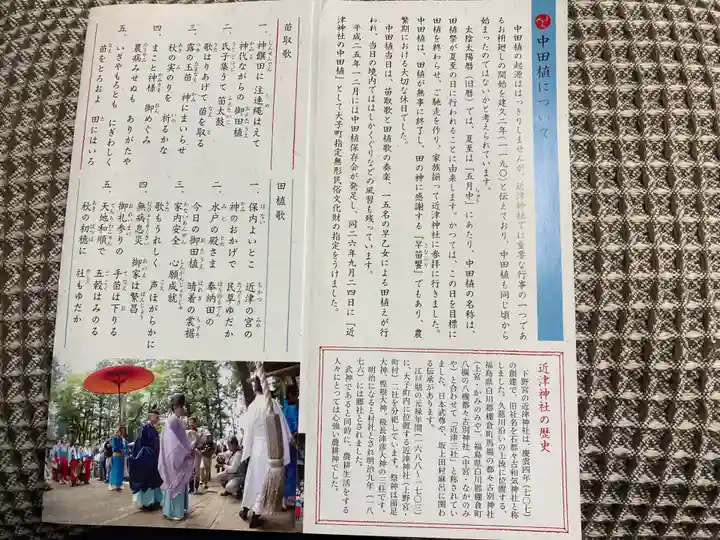 中田植について
中田植の起源ははっきりしませんが、近津神社では重要な行事の一つであ
る お枡廻しの開始を建久二年(一一九〇)と伝えており、中田植も同じ頃から
始まったのではないかと考えられています。
太陰太陽暦(旧暦)では、夏至は「五月中」にあたり、中田植の名称は、
田植祭が夏至の日に行われることに由来します。かつては、この日を目標に
田植を終わらせ、ご馳走を作り、家族揃って近津神社に参拝に行きました。
中田植は、田植が無事に終了し、田の神に感謝する「早苗饗」でもあり、農
繁期における大切な休日でした。
中田植当日は、苗取歌と田植歌の奏楽、一五名の早乙女による田植えが行
われ、当日の境内でははしかくぐりなどの風習も残っています。
平成二五年一二月には中田植保存会が発足し、同二六年九月二四日に「近
津神社の中田植」として大子町指定無形民俗文化財の指定をうけました。
近津神社の歴史
下野宮の近津神社は、慶雲四年(七〇七)
の創建で、旧社名を石都々古和気神社と称
しました。久慈川沿いの上流に位置する、
福島県白川郡棚倉町馬場の都々古別神社
(上宮・かみのみや)、福島県白川郡棚倉町
八槻の八槻都々古別神社(中宮・なかのみ
や)と合わせて「近津三社」と称されてい
ました。日本武尊や、坂上田村麻呂に関わ
る伝承があります。
江戸期の元禄年間(一六八八~一七〇三)
に、大子町内に位置する近津神社(上野宮・
町付)二社を分祀しています。祭神は面足
大神、惶根大神、級長津彦大神の三柱です。
明治になると村社とされ明治九年(一八
七六)には郷社とされました。
武神であると同時に、農耕生活をする
人々にとっては心強い農耕神でした。
苗取歌
一、神饌田に 注連縄はえて
神代ながらの御田植
二、氏子集うて 苗太鼓
歌はりあげて 苗を取る
三、露の玉苗 神にまいらせ
秋の実のりを 祈るかな
四、まこと神様 御めぐみ
農病みせぬも ありがたや
五、いざやもろとも にぎわしく
苗をとろおよ 田にはいろ
田植歌
一、保内よいとこ 近津の宮の
神のおかげで 民草ゆだか
二、水戸の殿さま 奉納田の
今日の御田植 晴着の裳裾
三、家内安全 心願成就
歌もうれしく 声ほがらかに
四、無病息災 御家は繁昌
御礼参りの 手苗は下りる
五、天地和順で 五穀はみのる
秋の初穂に 社もゆだか